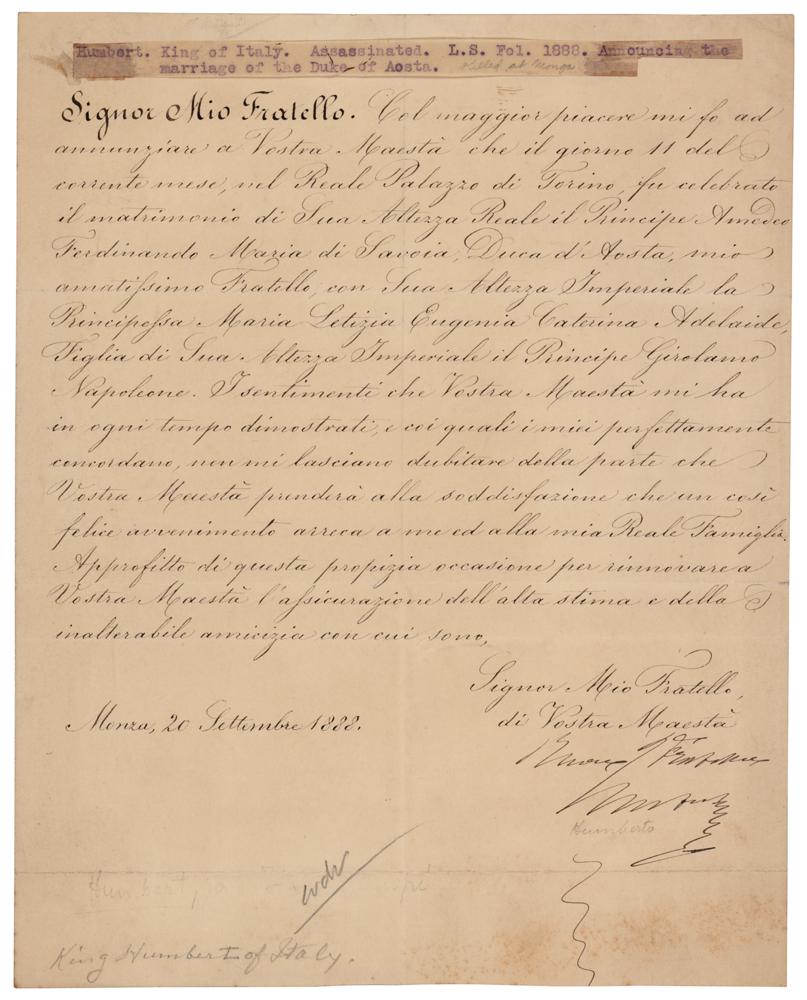 Humbert. King of Italy. Assassinated. L.S. Fol. 1888. Announcing the
marriage of the Duke of Aosta. killed at Monza
Signor Mio Fratello. Col maggior piacere mi fo ad
annunziare a Vostra Maestà che il giorno 11 del
corrente mese, nel Reale Palazzo di Torino, fu celebrato
il matrimonio di Sua Altezza Reale il Principe Amedeo
Ferdinando Maria di Savoia, Duca d'Aosta, mio
amatissimo Fratello, con Sua Altezza Imperiale la
Principessa Maria Letizia Eugenia Caterina Adelaide,
Figlia di Sua Altezza Imperiale il Principe Girolamo
Napoleone. I sentimenti che Vostra Maestà mi ha
in ogni tempo dimostrati, e coi quali i miei perfettamente
concordano, non mi lasciano dubitare della parte che
Vostra Maestà prenderà alla soddisfazione che un così
felice avvenimento arreca a me ed alla mia Reale Famiglia.
Approfitto di questa propizia occasione per rinnovare a
Vostra Maestà l'assicurazione dell'alta stima e della
inalterabile amicizia con cui sono,
Signor Mio Fratello,
di Vostra Maestà
Monza, 20 Settembre 1888.
Buon Fratello
Umberto
Humberto
Humbert,
King Humbert of Italy.